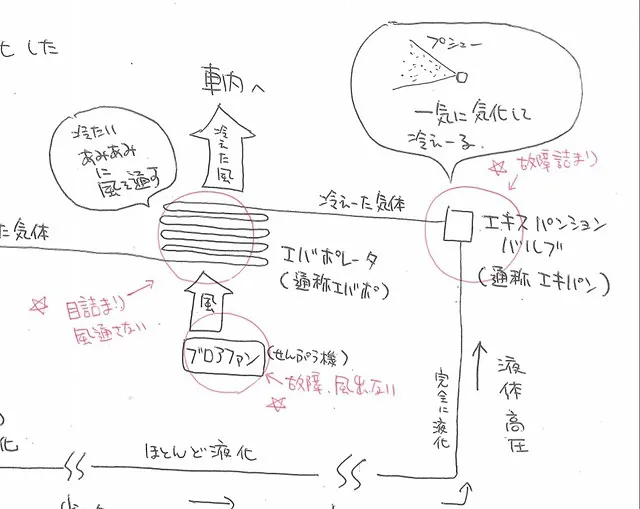 化した
車内へ
冷えた風
冷たい
あみあみ
に
風を通す
プシュー
一気に気化して
冷えーる
☆ 故障詰まり
冷えーた気体
エキスパンション
バルブ
(通称 エキパン)
た気体
エバポレータ
(通称エバポ)
☆ 目詰まり
風通さない
風
ブロアファン
(せんぷう機)
故障、風出ない
☆
完全に液化
液体高圧
化
ほとんど液化